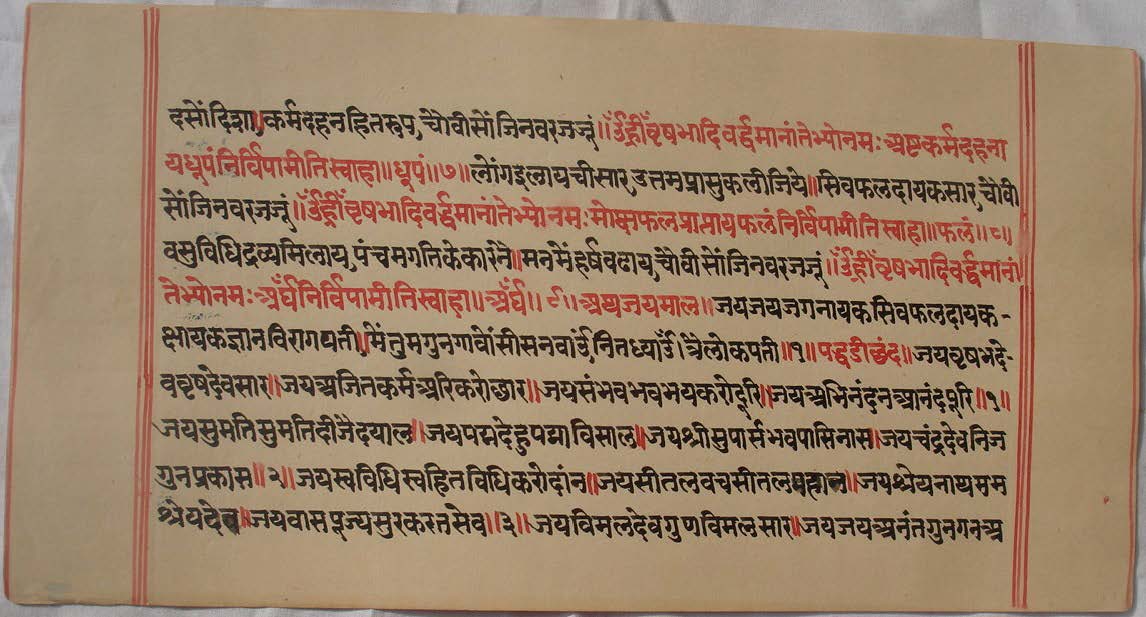 दसोंदिशा।कर्मदहनहितरूप,चौवीसोंजिनवरजजूं॥ॐह्रीँवृषभादिवर्द्धमानांतेभ्योनमः अष्टकर्मदहना
यधूपंनिर्विपामीतिस्वाहा॥धूपं॥७॥लोंगइलायचीसार,उत्तमप्रासुकलीजिये॥सिवफलदायकसार,चौंवी
सोंजिनवरजजूं॥ॐह्रीँवृषभादिवर्द्धमानांतेभ्योनमःमोक्षफलप्राप्तायफलंनिर्विपामीतिस्वाहा॥फलं॥८॥
वसुविधिद्रव्यमिलाय,पंचमगतिकेकारनै॥मनमेंहर्षवढाय,चौवीसोंजिनवरजजूं॥ॐह्रीँवृषभादिवर्द्धमानां
तेभ्योनमःअर्घंनिर्विपामीतिस्वाहा॥अर्घं॥९॥अथजयमाल॥जयजयजगनायकसिवफलदायक-
क्षायकज्ञानविरागयती॥मेंतुमगुनगावोंसीसनवाऊंनितध्याऊंत्रैलोकपती॥१॥पद्धडीछंद॥जयवृषभदे-
ववृषदेवसार॥जयअजितकर्मअरिकरोछार॥जयसंभवभवभयकरोदूरि॥जयअभिनंदनआनंदपूरि॥१॥
जयसुमतिसुमतिदीजैदयाल॥जयपद्मदेहुपद्माविसाल॥जयश्रीसुपार्सभवपासिनास॥जयचंद्रदेवनिज
गुनप्रकास॥२॥जयस्वविधिस्वहितविधिकरोदांन॥जयसीतलवचसीतल॥जयश्रेयनाथमम
श्रेयदेव॥जयवासपूज्यसुरकरतसेव॥३॥जयविमलदेवगुणविमलसार॥जयजयअनंतगुनगनअ